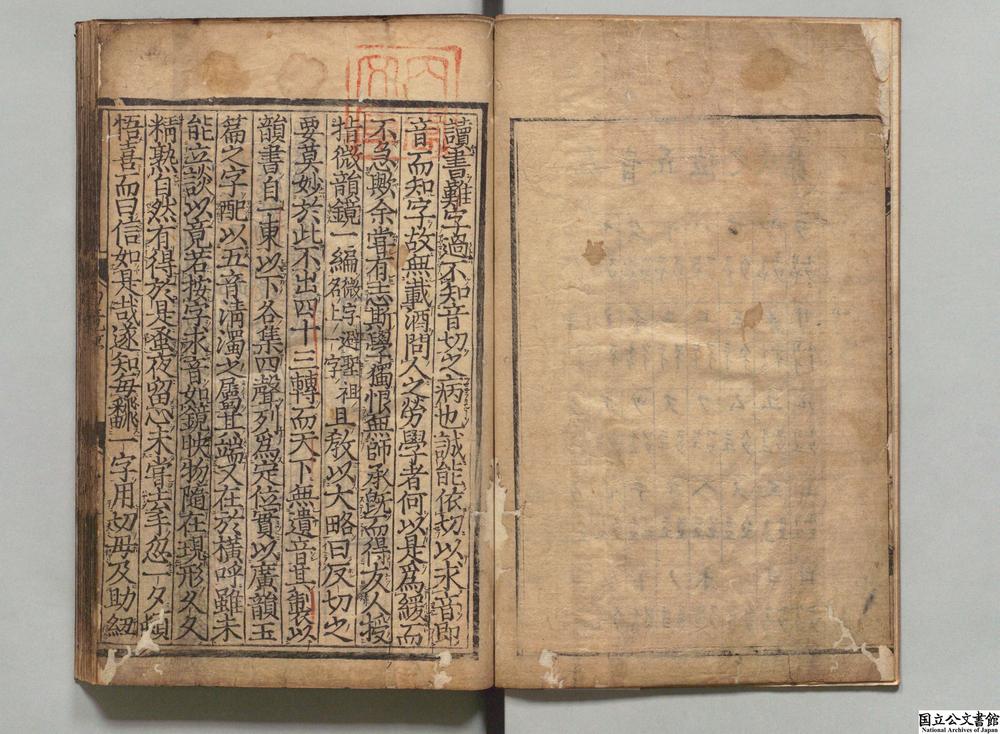 讀書難字過不知音切之病也誠能依切以求音即
音而知字故無載酒問人之勞學者何以是爲緩而
不急歟余嘗有志斯學獨恨無師承既而得友人授
指微韻鏡一編微字避聖祖名上一字且教以大略曰反切之
要莫妙於此不出四十三轉而天下無遺音其製以
韻書自一東以下各集四聲列爲定位實以廣韻玉
篇之字配以五音清濁之屬其端又在於橫呼雖未
能立談以竟若按字求音如鏡映物隨在現形久久
精熟自然有得於是蚤夜留心未嘗去手忽一夕頓
悟喜而曰信如是哉遂知每翻一字用切母及助紐
国立公文書館
National Archives of Japan